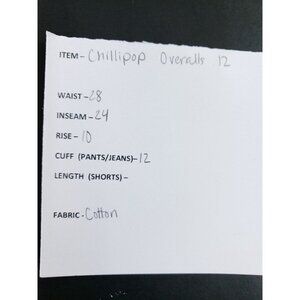 ITEM – Chillipop Overalls 12
WAIST – 28
INSEAM – 24
RISE – 10
CUFF (PANTS/JEANS) – 12
LENGTH (SHORTS) –
FABRIC - Cotton